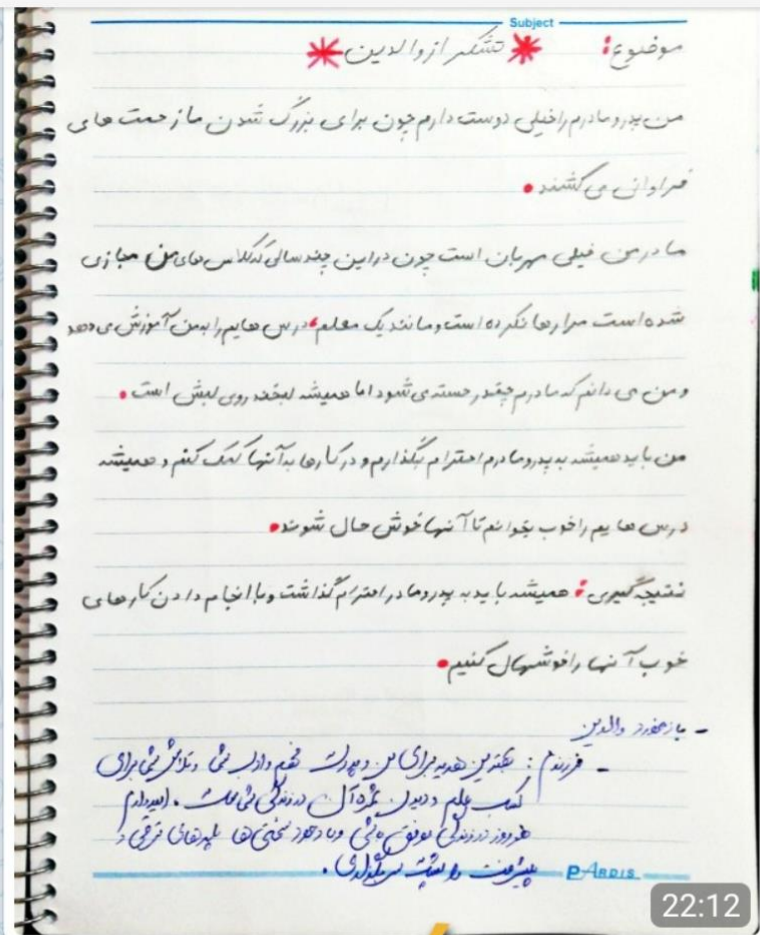 Subject
موضوع: * تشکر از والدین *
من پدر و مادرم را خیلی دوست دارم چون برای بزرگ شدن ما زحمت های
فراوانی می کشند.
مادر من خیلی مهربان است چون در این چند سالی که کلاس های من مجازی
شده است مرا رها نکرده است و مانند یک معلم، درس هایم را به من آموزش می دهد
و من می دانم که مادرم چقدر خسته می شود اما همیشه لبخند روی لبش است.
من باید همیشه به پدر و مادرم احترام بگذارم و در کارها به آنها کمک کنم و همیشه
درس هایم را خوب بخوانم تا آنها خوش حال شوند.
نتیجه گیری: همیشه باید به پدر و مادر احترام گذاشت و با انجام دادن کارهای
خوب آنها را خوشهال کنیم.
- بازخورد والدین
- فرزندم: بهترین هدیه برای من و پدرت فهم و ادب تو و تلاش تو برای
کسب علم و دیدن ثمره آن در زندگی تو است. امیدوارم
هر روز در زندگی موفق باشی و با وجود سختی ها پله های ترقی و
پیشرفت را پشت سر بگذاری.
PARDIS
22:12